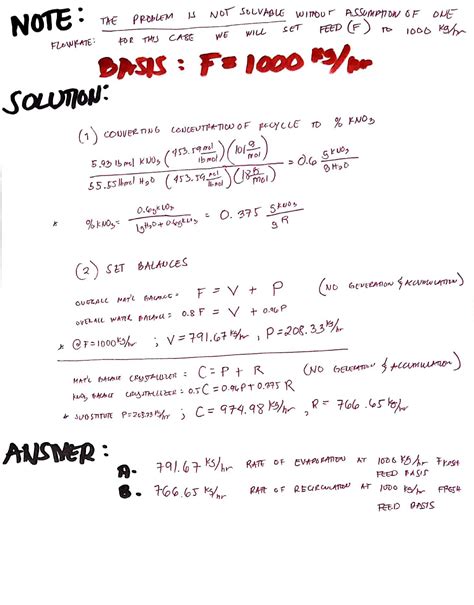 NOTE: THE PROBLEM IS NOT SOLVABLE WITHOUT ASSUMPTION OF ONE
FLOWRATE: FOR THIS CASE WE WILL SET FEED (F) TO 1000 kg/hr
BASIS: F = 1000 kg/hr
SOLUTION:
(1) CONVERTING CONCENTRATION OF RECYCLE TO % KNO3
5.93 lbmol KNO3 (453.59 mol/lbmol) (101 g/mol)
55.55 lbmol H2O (453.59 mol/lbmol) (18 g/mol) = 0.6 g KNO3/g H2O
* % KNO3 = 0.6g KNO3/(1g H2O + 0.6g KNO3) = 0.375 g KNO3/g R
(2) SET BALANCES
OVERALL MAT'L BALANCE = F = V + P (NO GENERATION & ACCUMULATION)
OVERALL WATER BALANCE = 0.8 F = V + 0.04P
* @ F = 1000 kg/hr ; V = 791.67 kg/hr , P = 208.33 kg/hr
MAT'L BALANCE CRYSTALLIZER = C = P + R (NO GENERATION & ACCUMULATION)
KNO3 BALANCE CRYSTALLIZER = 0.5 C = 0.96P + 0.375 R
* SUBSTITUTE P = 208.33 kg/hr ; C = 974.98 kg/hr , R = 766.65 kg/hr
ANSWER:
A. 791.67 kg/hr RATE OF EVAPORATION AT 1000 kg/hr FRESH
FEED BASIS
B. 766.65 kg/hr RATE OF RECIRCULATION AT 1000 kg/hr FRESH
FEED BASIS